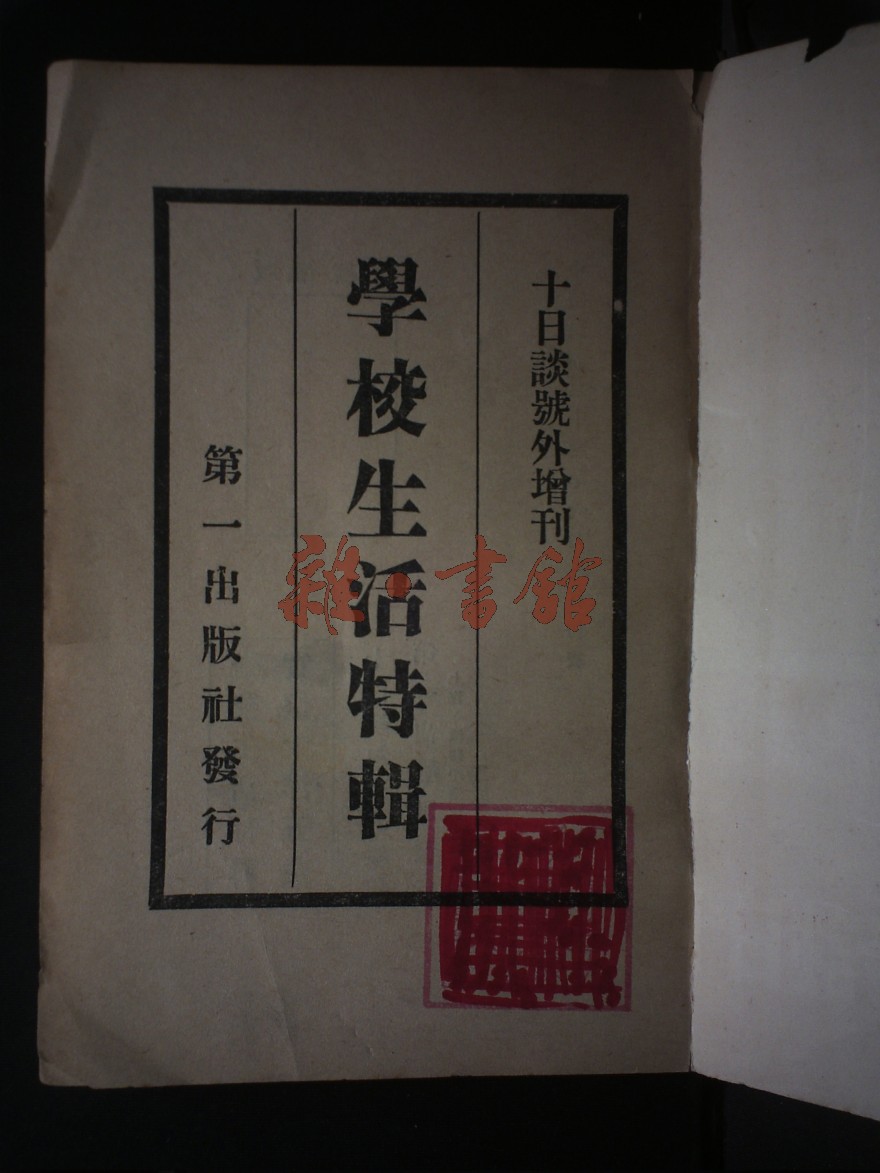 十日談號外增刊
學校生活特輯
第一出版社發行
雜·書館